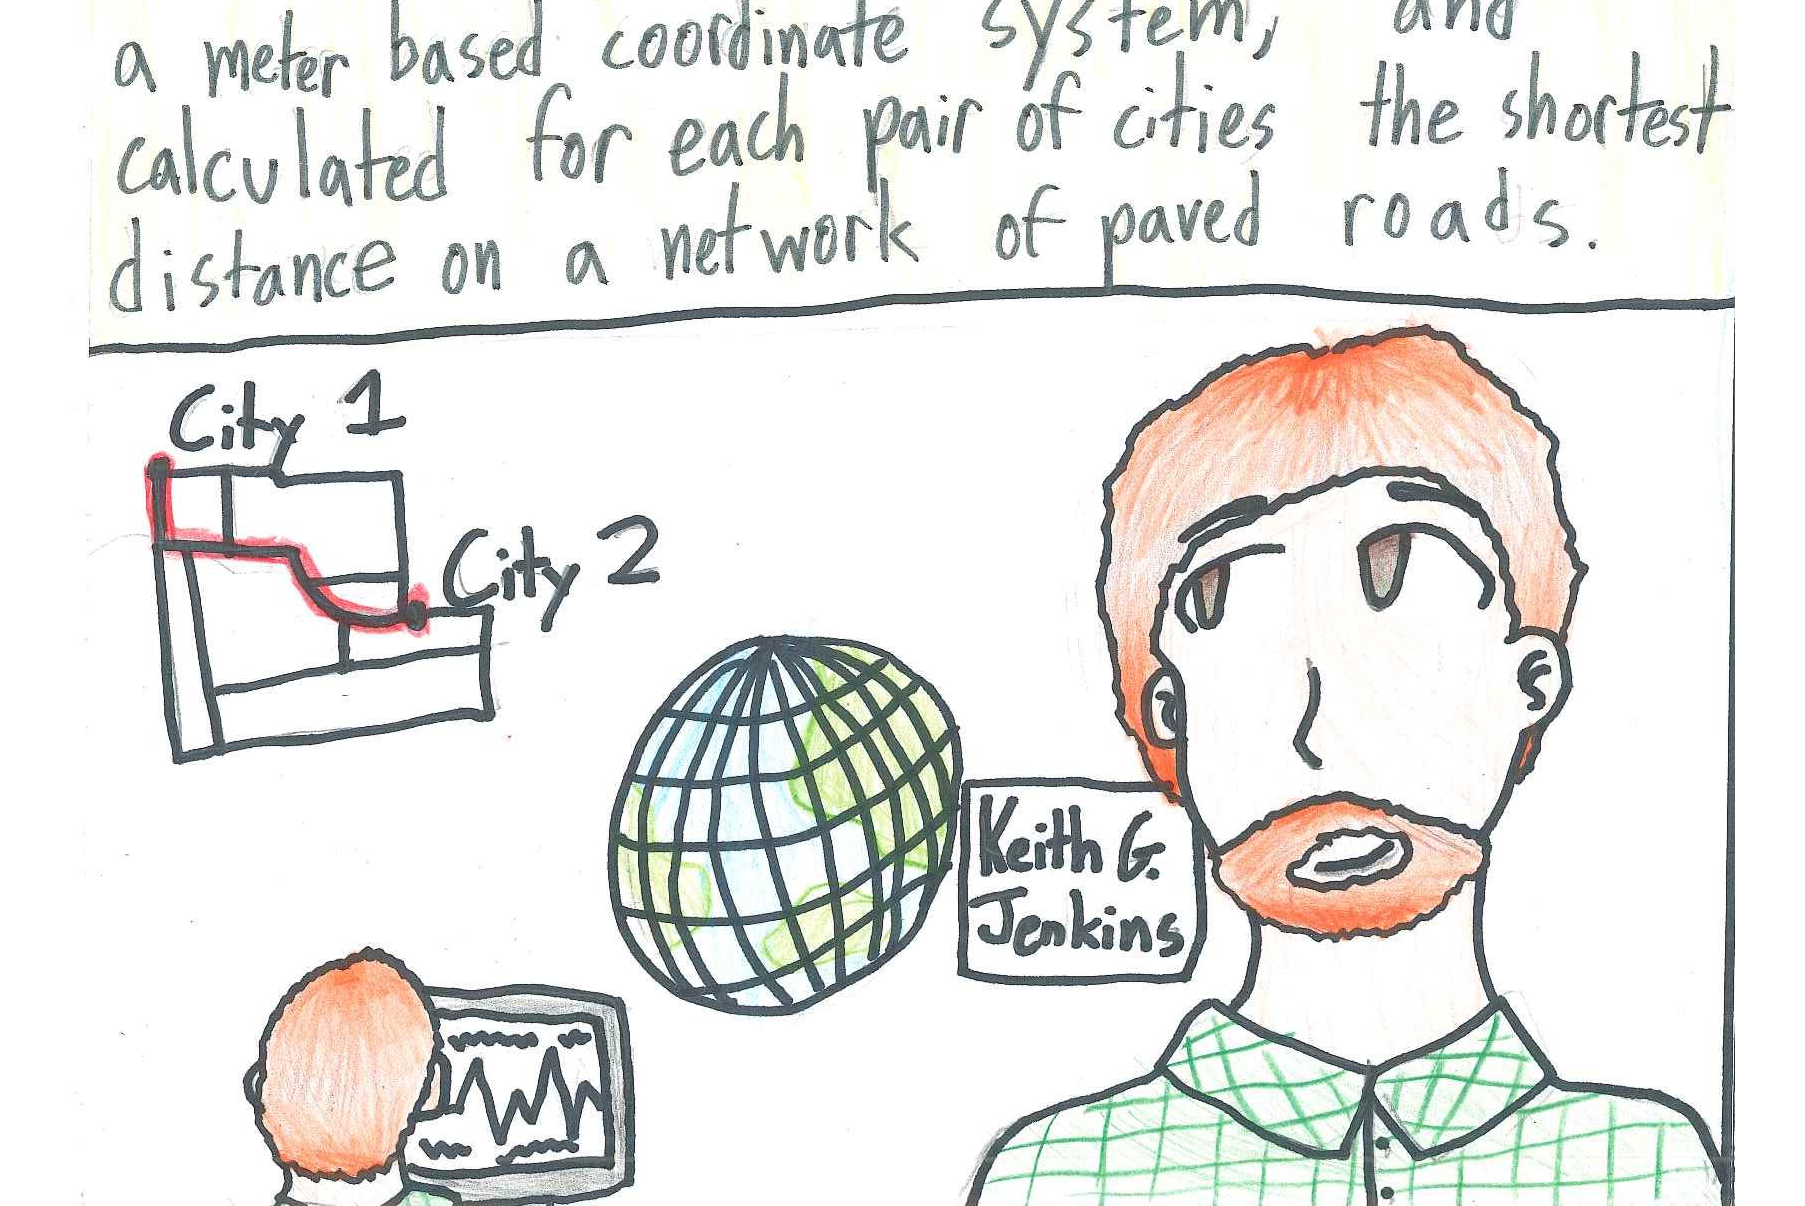 a meter based coordinate system, and
calculated for each pair of cities the shortest
distance on a network of paved roads.
City 1
City 2
Keith G.
Jenkins